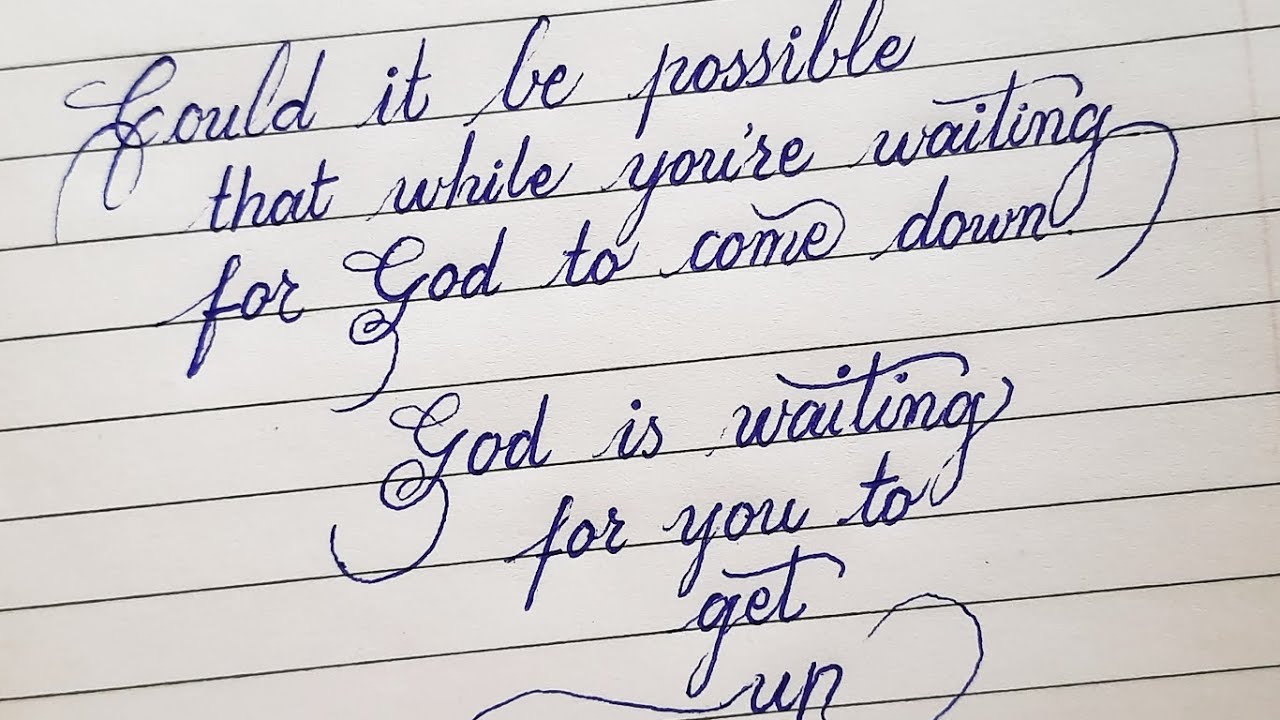 Could it be possible
that while you're waiting
for God to come down
God is waiting
for you to
get
up